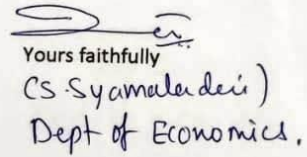 Yours faithfully
(S. Syamaladevi)
Dept of Economics.